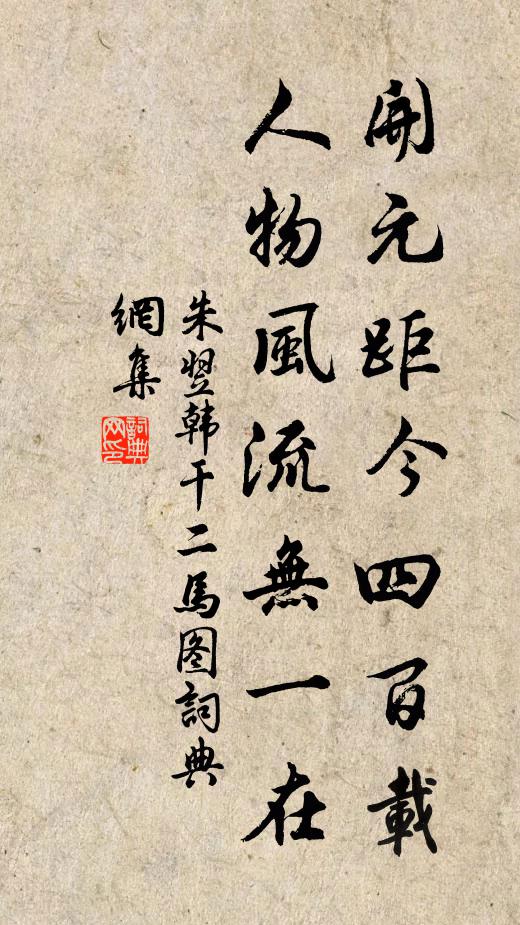 開元距今四百載
人物風流無一在
朱翌韩干二馬图詞典
網集
詞典
网印